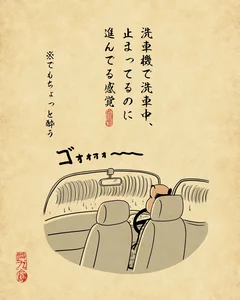 洗車機で洗車中、
止まってるのに
進んでる感覚
※でもちょっと酔う
ゴォォォォ〜〜